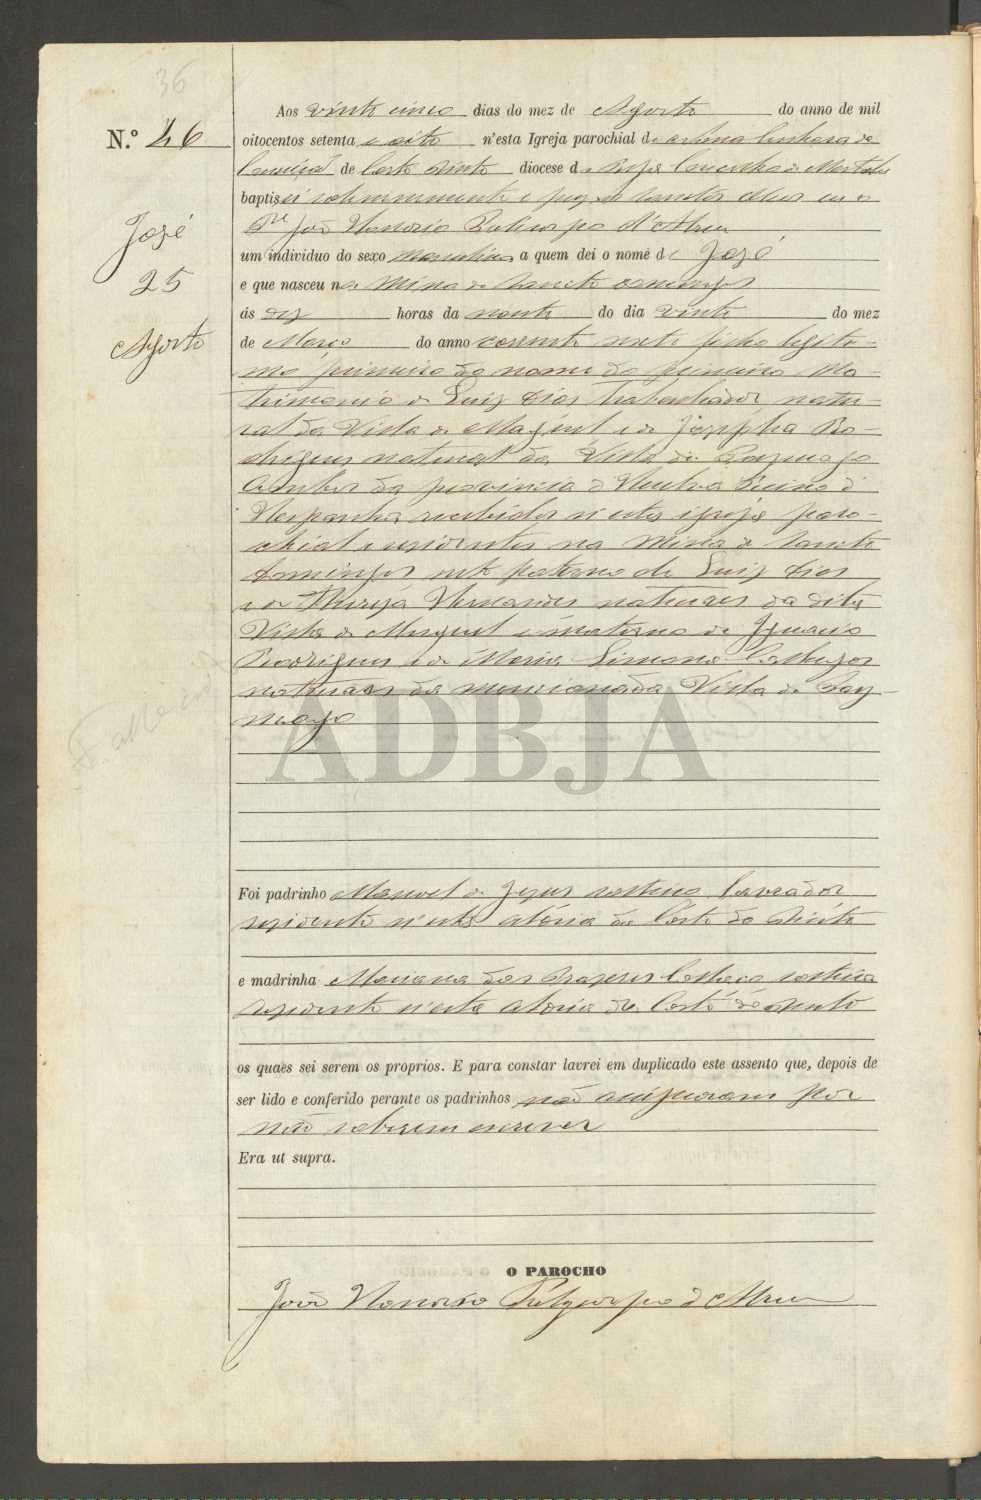 36
N.º 46
José
25
Agosto
Fallecido
Aos vinte cinco dias do mez de Agosto do anno de mil
oitocentos setenta e oito n'esta Igreja parochial de Senhora da
Conceição de Corte do Pinto diocese de Beja Concelho de Mertola
baptisei solemnemente e puz os Santos Oleos eu o
Pe João Honorio Policarpo d'Abreu
um individuo do sexo masculino a quem dei o nome de José
e que nasceu na Mina de Sancto Domingos
ás dez horas da noute do dia vinte do mez
de Março do anno corrente neste filho legiti-
mo primeiro do nome do primeiro Ma-
trimonio de Luiz Dios trabalhador natu-
ral da Villa de e de Josepha Ro-
drigues natural da Villa de Paymogo
ambos da provincia d'Huelva Reino d'
Hespanha recebidos n'esta igreja paro-
chial e residentes na Mina de Sancto
Domingos neto paterno de Luiz Dios
e de Thereza Hernandes naturaes da dita
Villa de e materno de Ignacio
Rodrigues e de Maria Simona
naturaes da mencionada Villa de Pay-
mogo
ADBJA
Foi padrinho Manoel de Jesus solteiro lavrador
residente n'esta aldeia da Corte do Pinto
e madrinha Marianna dos Prazeres solteira
residente n'esta aldeia da Corte do Pinto
os quaes sei serem os proprios. E para constar lavrei em duplicado este assento que, depois de
ser lido e conferido perante os padrinhos não assignaram por
não saberem escrever
Era ut supra.
O PAROCHO
João Honorio Policarpo d'Abreu